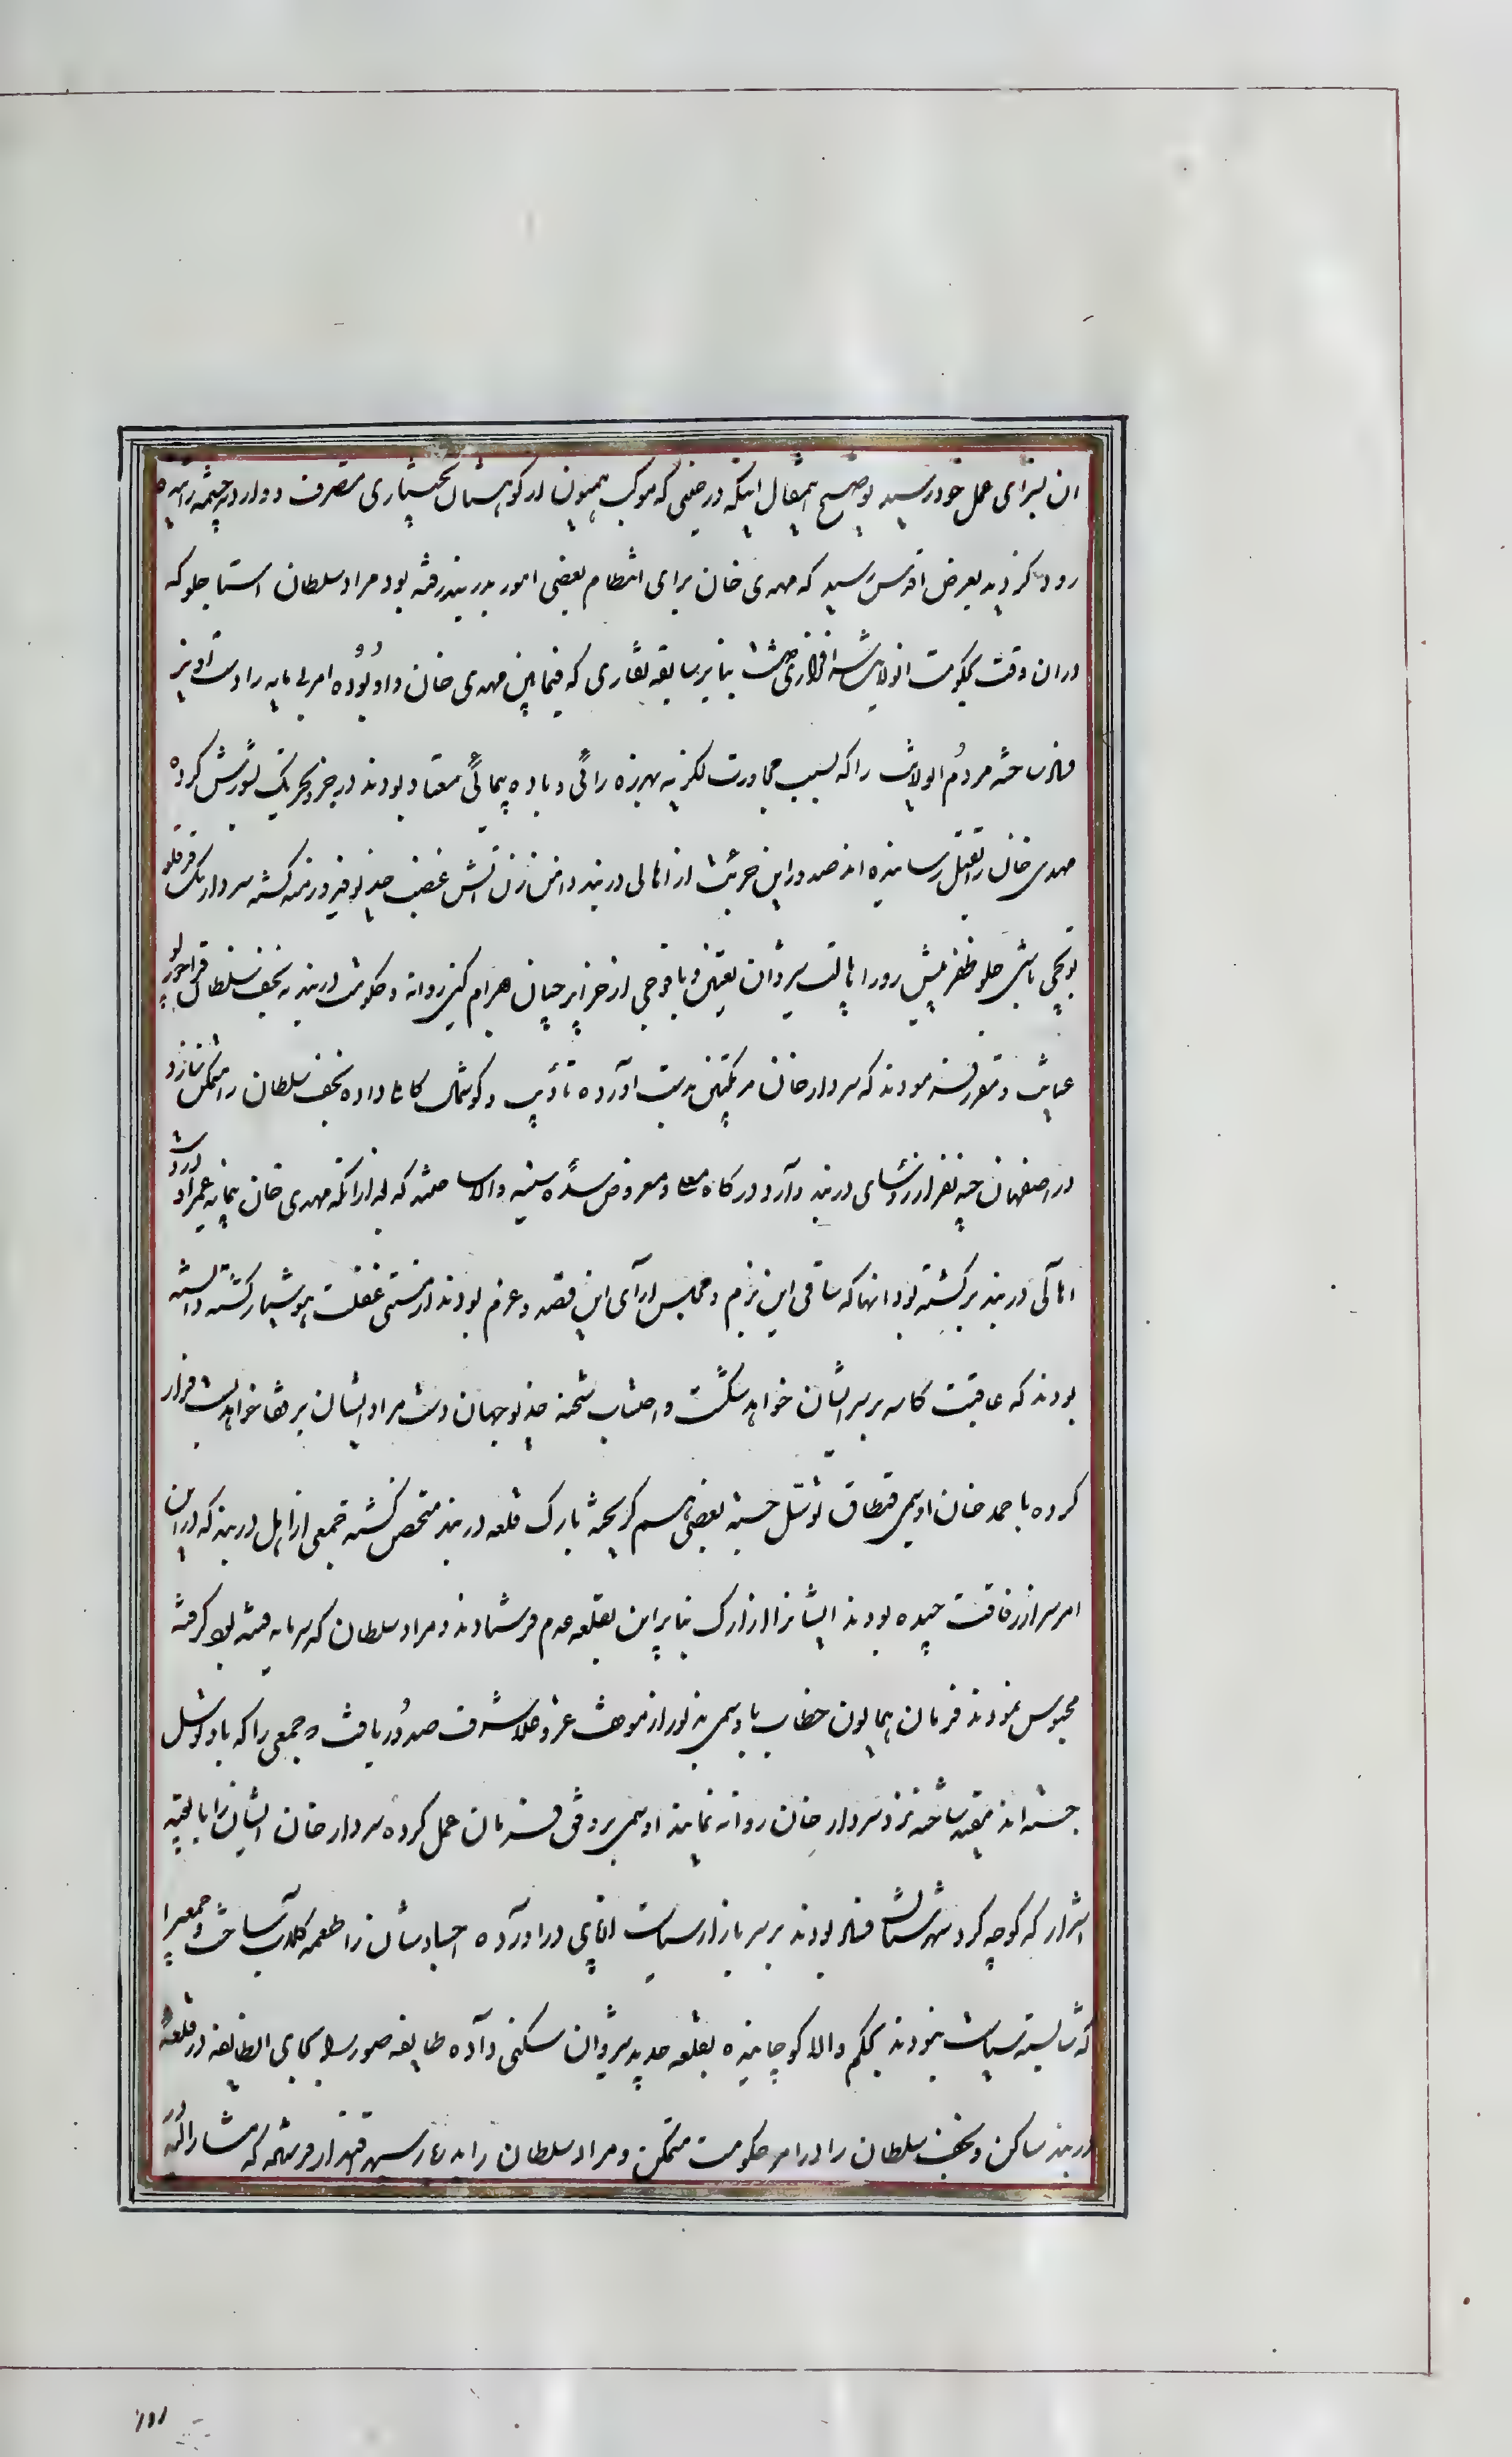 ان بسزای عمل خود رسید توضیح اینمقال اینکه در حینی که موکب همیون از کوهستان بختیاری منصرف و وارد چشمه زاینده
رود گردید بعرض اقدس رسید که مهدی خان برای انتظام بعضی امور بدربند رفته بود مراد سلطان استاجلو که
دران وقت بحکومت انولایت سرافرازی داشت بنا بر سابقه نقاری که فیمابین مهدی خان و او بوده امر بی مایه را دست آویز
فساد ساخته مردم الولایت را که بسبب مجاورت لکزیه بهرزه رائی و باده پیمائی معتاد بودند در جزو تحریک شورش کرده
مهدی خان را بقتل رسانیده اند صدور این جرئت از اهالی دربند دامن زن آتش غضب خدیو فیروزمند گشته سردار بیک قرقلو
توپچی باشی جلو ظفر پیش رو را بایالت شیروان تعیین و با فوجی از جزایرچیان بهرام کین روانه و حکومت دربند به نجف سلطان قراچورلو
عنایت و مقرر فرمودند که سردار خان مرتکبین بدست آورده تأدیب و گوشمال کامل داده نجف سلطان را متمکن سازد
در اصفهان چند نفر از رؤسای دربند وارد درگاه معلی و معروض سدّه سنیه والا ساختند که بعد ازانکه مهدی خان پیمانه عمر او
اهالی دربند برگشته بود انها که ساقی این بزم و مجلس آرای این قصد و عزم بودند از مستی غفلت هوشیار گشته دانسته
بودند که عاقبت کاسه بر سر ایشان خواهد شکست و احتساب شحنه خدیو جهان دست مراد ایشان بر قفا خواهد بست فرار
کرده باحمد خان اوسمی قیطاق توسّل جسته بعضی هم گریخته بارک قلعه دربند متحصن گشته جمعی از اهل دربند که در این
امر سر از رفاقت پیچیده بودند ایشانرا از ارک بنابراین بقلعه عدم فرستادند و مراد سلطان که سرمایه فتنه بود گرفته
محبوس نمودند فرمان همایون خطاب باوسمی مذبور از موقف عز و جلال شرف صدور یافت که جمعی را که باو توسل
جسته اند مقید ساخته نزد سردار خان روانه نمایند اوسمی بر وفق فرمان عمل کرده سردار خان ایشان را با بقیه
اشرار که کوچه گرد شهرستان فساد بودند بر سر بازار سیاست از پای در آورده اجسادشان را طعمه کلاب ساخت و جمعیرا
که شایسته سیاست نبودند بحکم والا کوچانیده بقلعه جدید شیروان سکنی داده طایفه صورسرا بجای الطایفه در قلعه
دربند ساکن و نجف سلطان را در امر حکومت متمکن و مراد سلطان را به دربار سپهر اقتدار فرستاد که مشارالیه